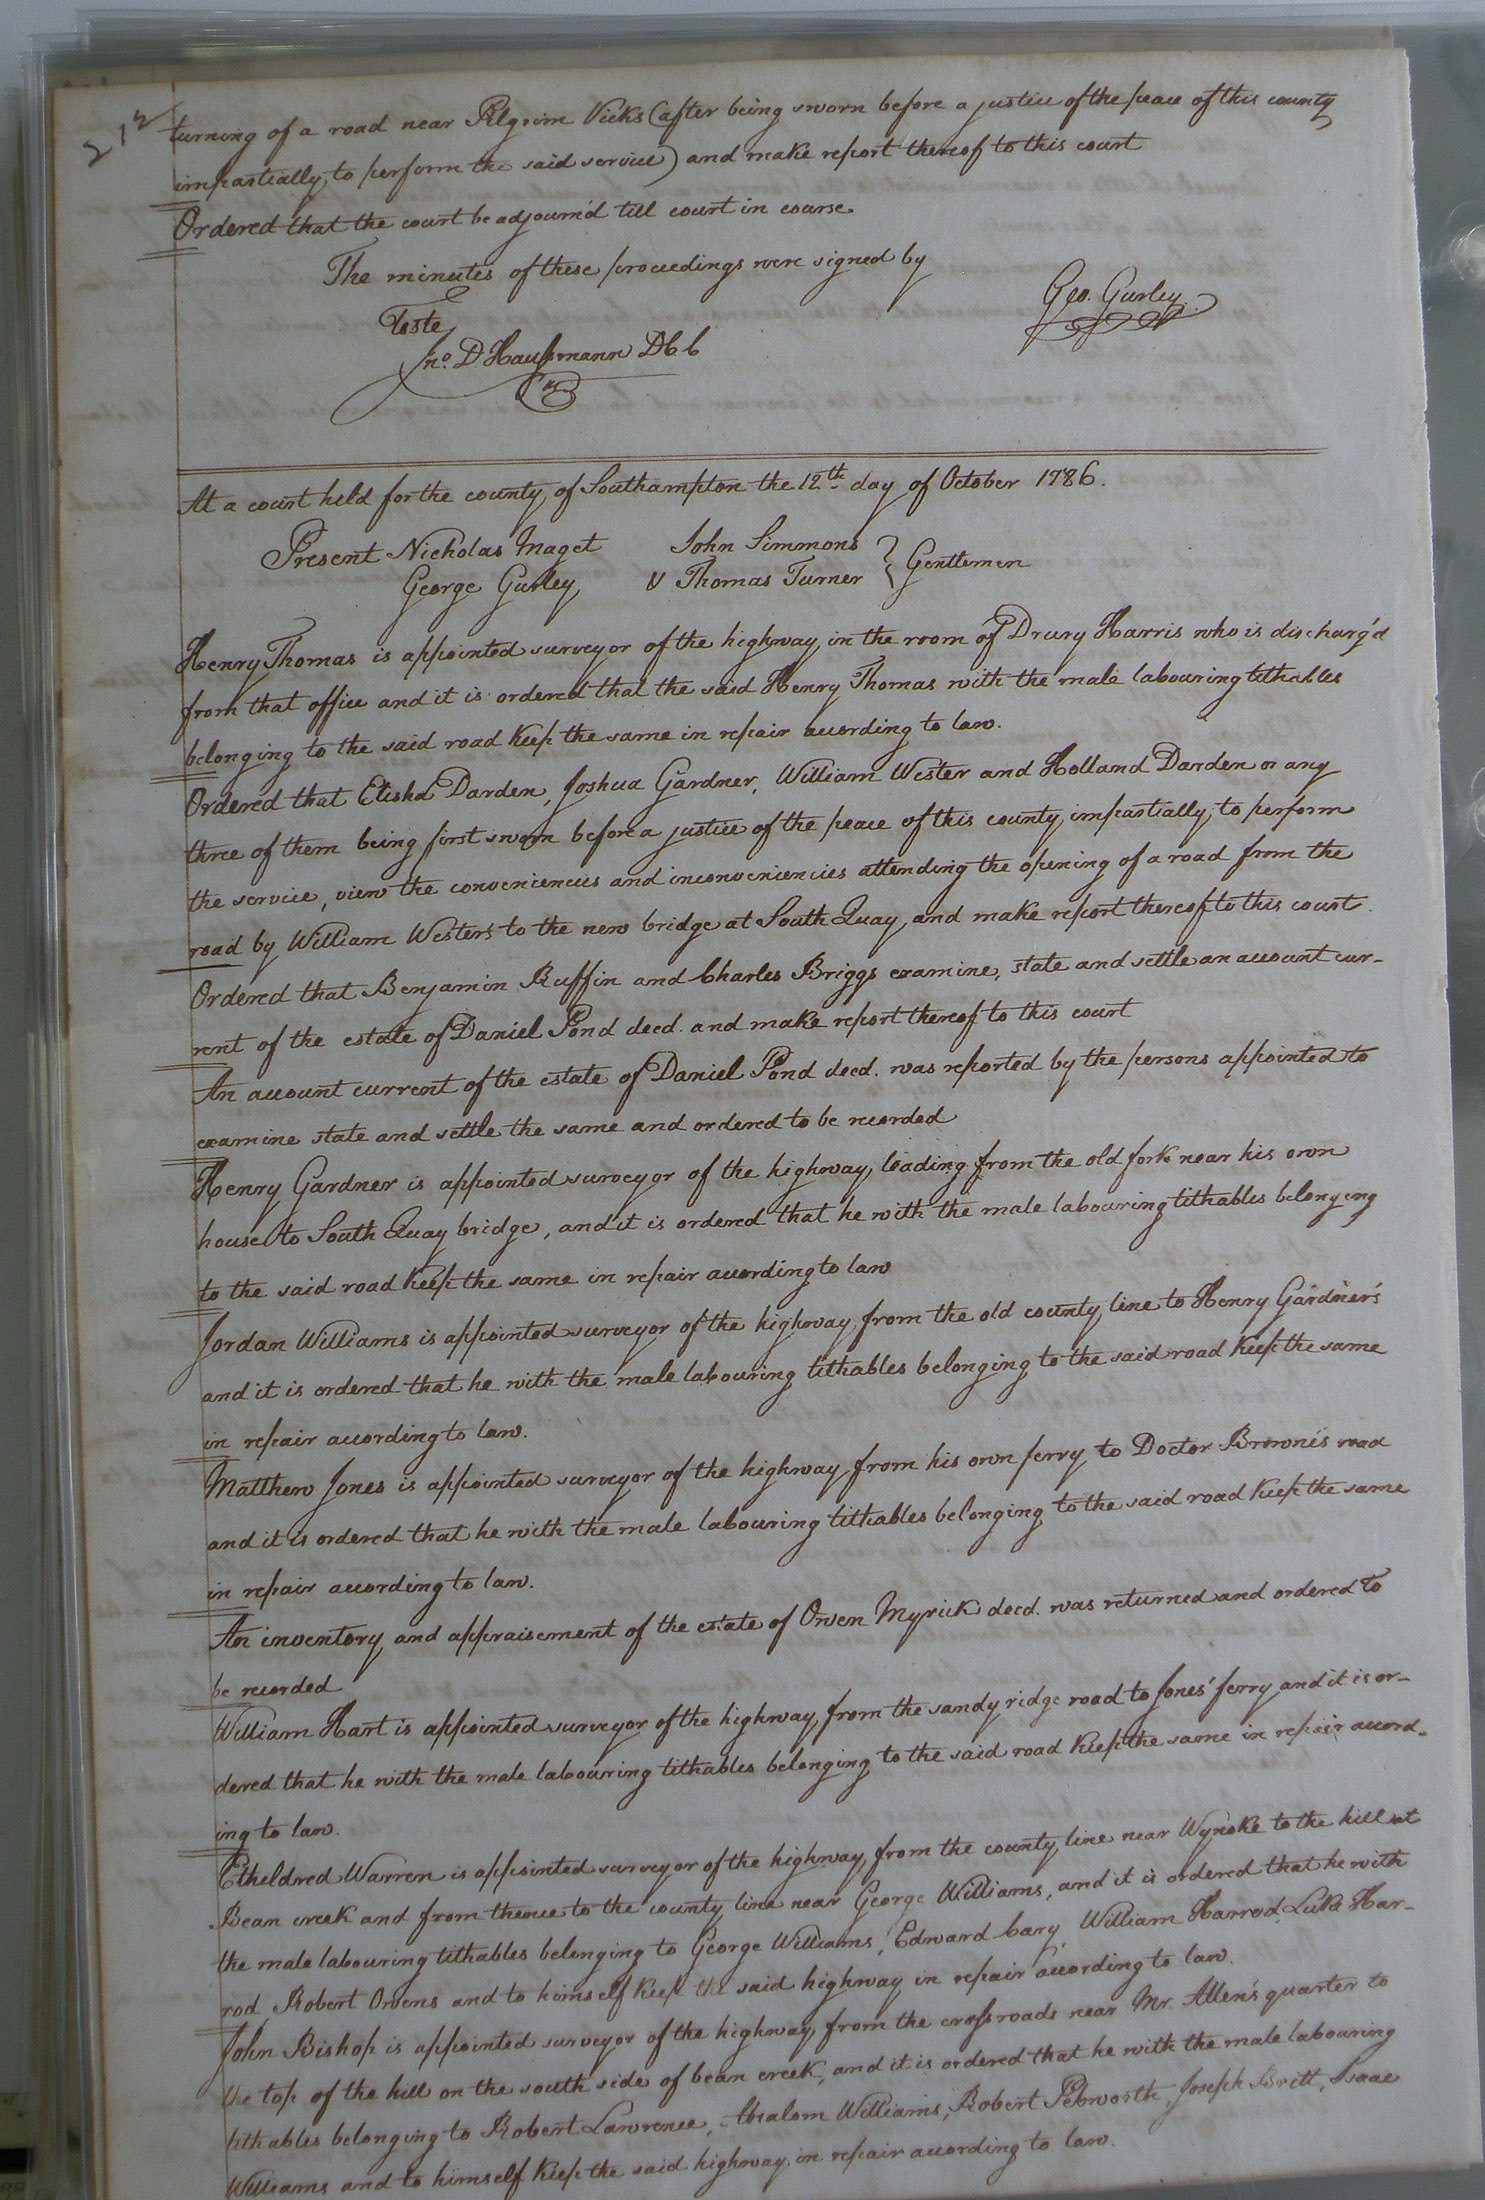 212
turning of a road near Pilgrim Vicks (after being sworn before a justice of the peace of this county
impartially to perform the said service) and make report thereof to this court
Ordered that the court be adjourn'd till court in course
The minutes of these proceedings were signed by
Geo. Gurley
Teste
Jno. D. Haussmann DCC
At a court held for the county of Southampton the 12th day of October 1786.
Present Nicholas Maget John Simmons } Gentlemen
George Gurley & Thomas Turner
Henry Thomas is appointed surveyor of the highway in the room of Drury Harris who is discharg'd
from that office and it is ordered that the said Henry Thomas with the male labouring tithables
belonging to the said road keep the same in repair according to law.
Ordered that Elisha Darden, Joshua Gardner, William Wester and Holland Darden or any
three of them being first sworn before a justice of the peace of this county impartially to perform
the service, view the conveniencies and inconveniencies attending the opening of a road from the
road by William Westers to the new bridge at South Quay and make report thereof to this court.
Ordered that Benjamin Ruffin and Charles Briggs examine, state and settle an account cur-
rent of the estate of Daniel Pond decd. and make report thereof to this court
An account current of the estate of Daniel Pond decd. was reported by the persons appointed to
examine state and settle the same and ordered to be recorded
Henry Gardner is appointed surveyor of the highway leading from the old fork near his own
house to South Quay bridge, and it is ordered that he with the male labouring tithables belonging
to the said road keep the same in repair according to law
Jordan Williams is appointed surveyor of the highway from the old county line to Henry Gardner's
and it is ordered that he with the male labouring tithables belonging to the said road keep the same
in repair according to law.
Matthew Jones is appointed surveyor of the highway from his own ferry to Doctor Browne's road
and it is ordered that he with the male labouring tithables belonging to the said road keep the same
in repair according to law.
An inventory and appraisement of the estate of Owen Myrick decd. was returned and ordered to
be recorded
William Hart is appointed surveyor of the highway from the sandy ridge road to Jones' ferry and it is or-
dered that he with the male labouring tithables belonging to the said road keep the same in repair accord-
ing to law.
Etheldred Warren is appointed surveyor of the highway from the county line near Wynoke to the hill at
Bean creek and from thence to the county line near George Williams, and it is ordered that he with
the male labouring tithables belonging to George Williams, Edward Cary, William Harrod, Luke Har-
rod, Robert Owens and to himself keep the said highway in repair according to law.
John Bishop is appointed surveyor of the highway from the crossroads near Mr. Allen's quarter to
the top of the hill on the south side of bean creek, and it is ordered that he with the male labouring
tithables belonging to Robert Lawrence, Absalom Williams, Robert Pebworth, Joseph Britt, Isaac
Williams and to himself keep the said highway in repair according to law.